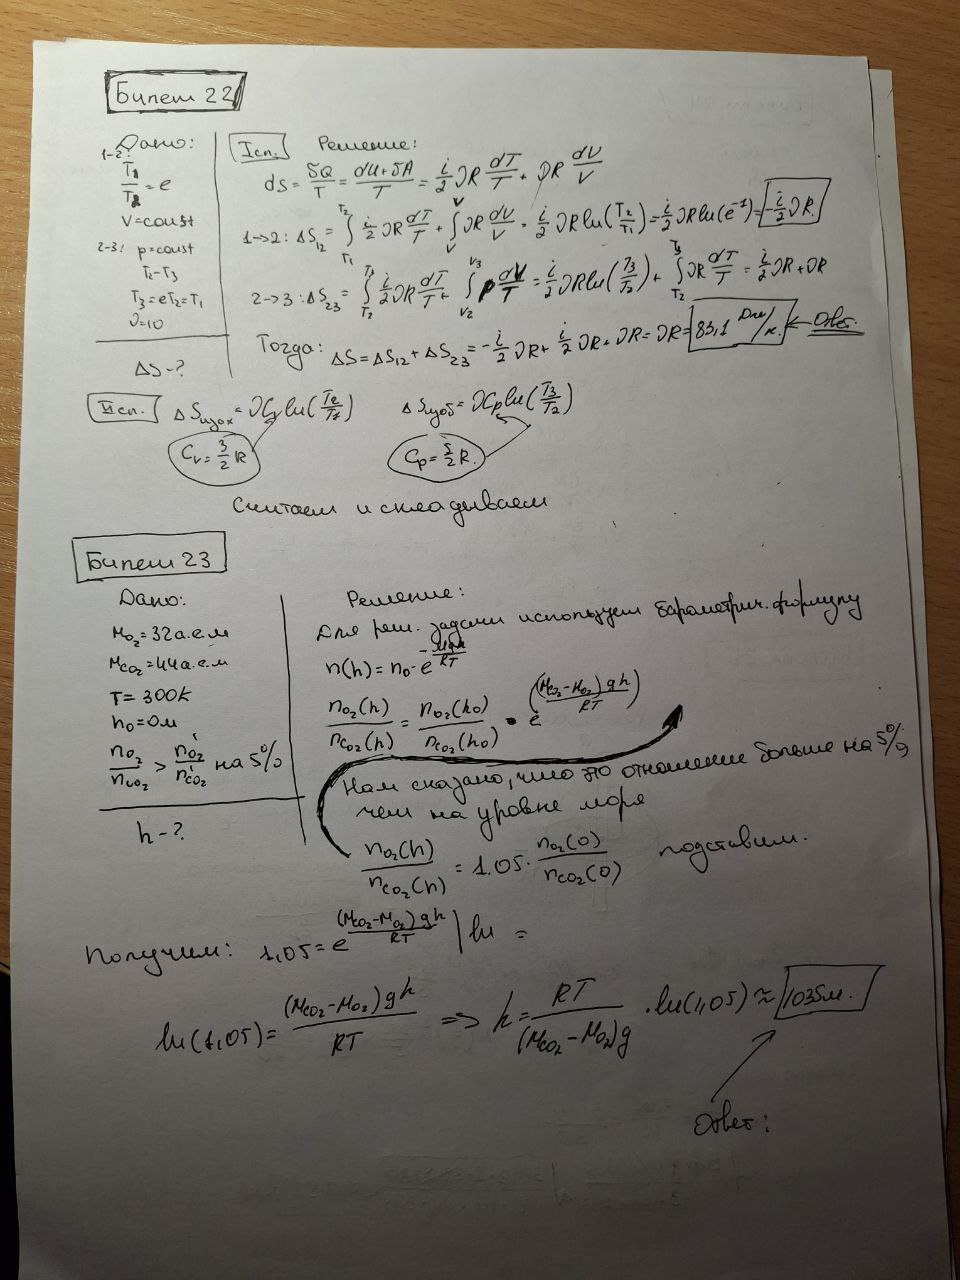 Билет 22
Дано:
1-2:
T₁/T₂ = e
V=const
2-3: p=const
T₂-T₃
T₃=eT₂=T₁
ν=10
ΔS-?
I сп. Решение:
dS = δQ/T = (dU+δA)/T = i/2 νR dT/T + νR dV/V
1→2: ΔS₁₂ = ∫_{T₁}^{T₂} i/2 νR dT/T + ∫_V^V νR dV/V = i/2 νR ln(T₂/T₁) = i/2 νR ln(e⁻¹) = -i/2 νR.
2→3: ΔS₂₃ = ∫_{T₂}^{T₃} i/2 νR dT/T + ∫_{V₂}^{V₃} p dV/T = i/2 νR ln(T₃/T₂) + ∫_{T₂}^{T₃} νR dT/T = i/2 νR + νR
Тогда: ΔS = ΔS₁₂ + ΔS₂₃ = -i/2 νR + i/2 νR + νR = νR = 83,1 Дж/К. ← Ответ.
II сп. ΔSизох = νCᵥ ln(T₂/T₁) ΔSизоб = νCp ln(T₃/T₂)
Cᵥ = 3/2 R Cp = 5/2 R.
Считаем и складываем
Билет 23
Дано:
Mo₂ = 32 а.е.м
Mco₂ = 44 а.е.м
T = 300K
h₀ = 0м
no₂/nco₂ > n'o₂/n'co₂ на 5%
h-?
Решение:
Для реш. задачи используем барометрич. формулу
n(h) = n₀·e^(-Mgh/RT)
no₂(h)/nco₂(h) = no₂(h₀)/nco₂(h₀) · e^((Mco₂-Mo₂)gh/RT)
Нам сказано, что это отношение больше на 5%,
чем на уровне моря
no₂(h)/nco₂(h) = 1.05 · no₂(0)/nco₂(0) подставим.
Получим: 1,05 = e^((Mco₂-Mo₂)gh/RT) | ln =
ln(1,05) = (Mco₂-Mo₂)gh/RT => h = RT/((Mco₂-Mo₂)g) · ln(1,05) ≈ 1035м.
Ответ: